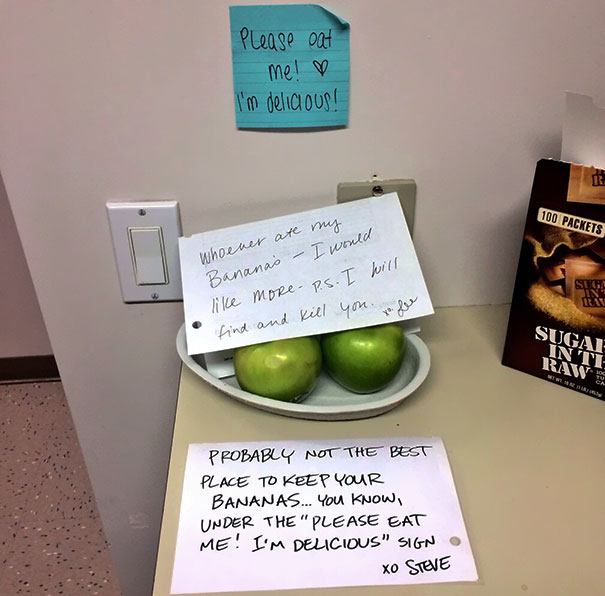 Please eat
me! ♡
I'm delicious!
Whoever ate my
Bananas – I would
like more. P.S. I will
find and kill you.
PROBABLY NOT THE BEST
PLACE TO KEEP YOUR
BANANAS... YOU KNOW,
UNDER THE "PLEASE EAT
ME! I'M DELICIOUS" SIGN
XO STEVE
100 PACKETS
SUGAR
IN T
RAW